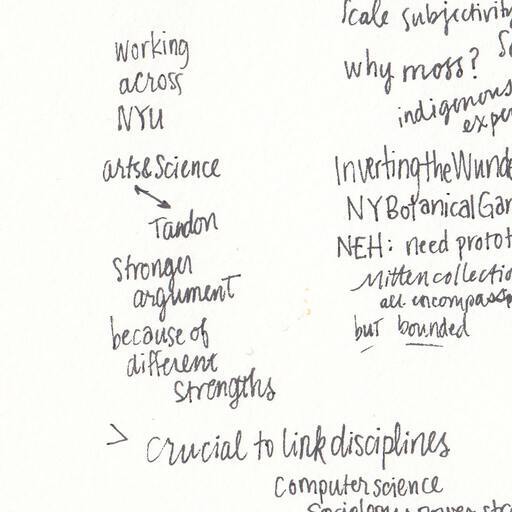 working
across
NYU
arts&Science
Tandon
Stronger
argument
because of
different
strengths
Scale subjectivity
why moss?
indigenous
Inverting the
NYBotanicalGar
NEH: need protot
Mitten collectio
all encompass
but bounded
> crucial to link disciplines
Computer science